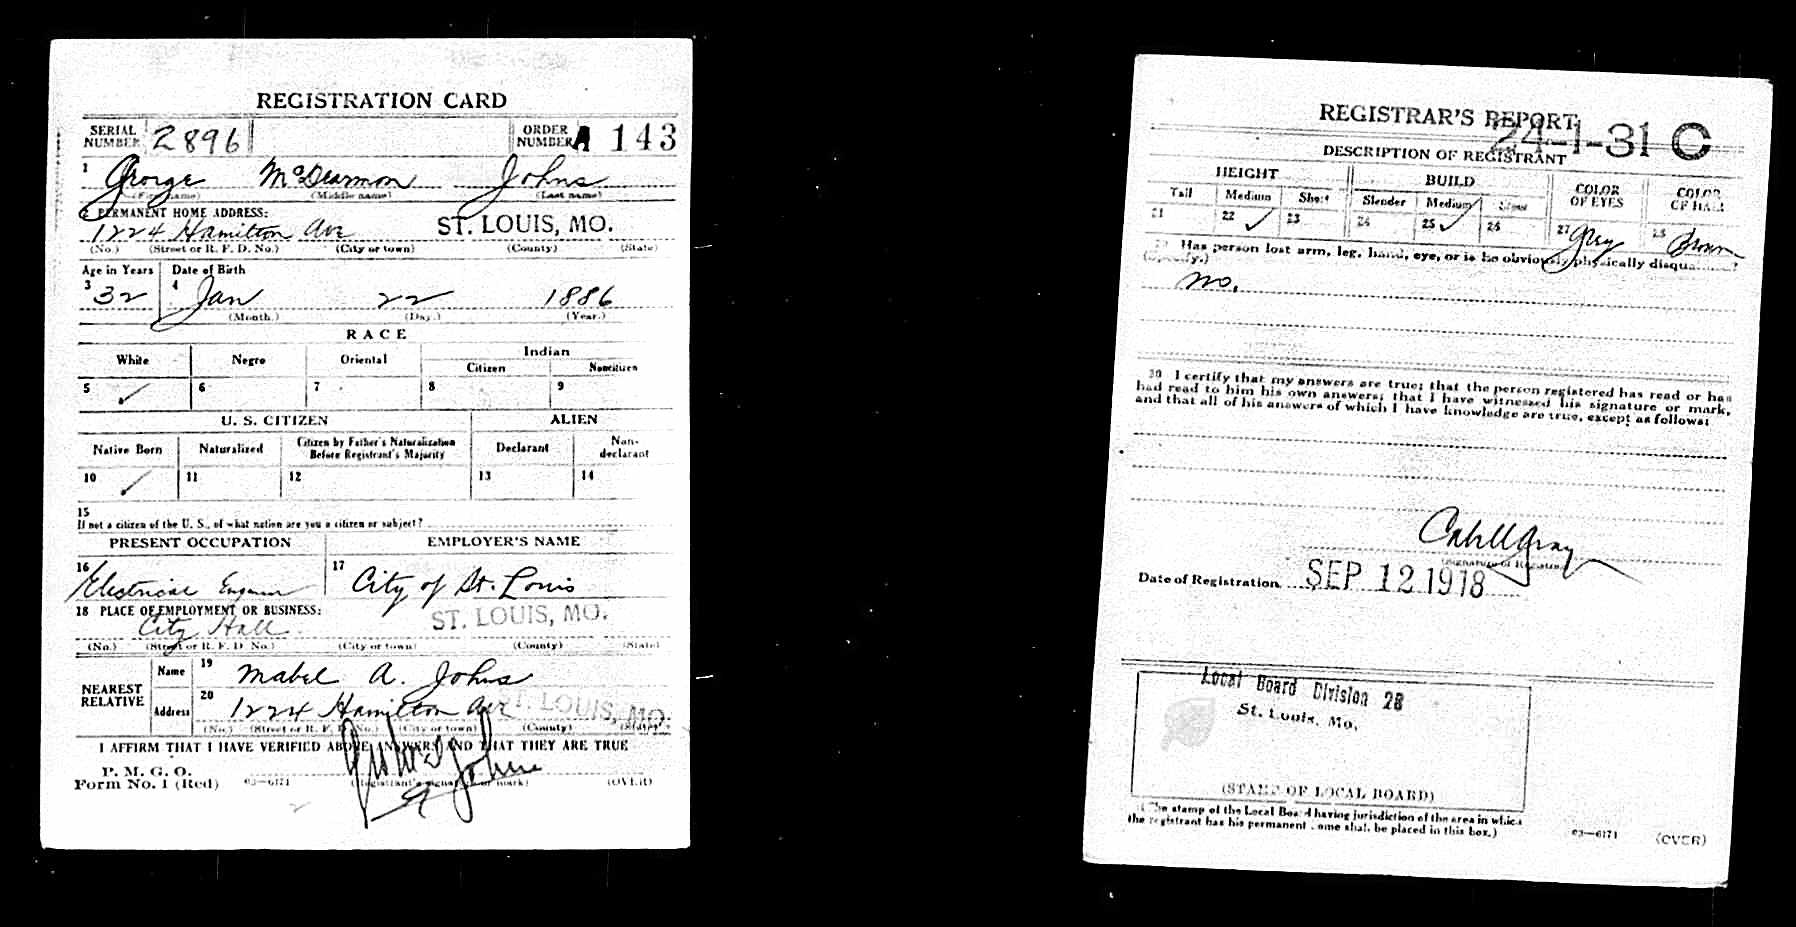 REGISTRATION CARD
SERIAL NUMBER 2896 ORDER NUMBER A 143
1 George McDearmon Johns
(First name) (Middle name) (Last name)
2 PERMANENT HOME ADDRESS:
1224 Hamilton Ave ST. LOUIS, MO.
(No.) (Street or R. F. D. No.) (City or town) (County) (State)
Age in Years Date of Birth
3 32 4 Jan 22 1886
(Month.) (Day.) (Year.)
RACE
White Negro Oriental Indian
Citizen Noncitizen
5 ✓ 6 7 8 9
U. S. CITIZEN ALIEN
Native Born Naturalized Citizen by Father's Naturalization Before Registrant's Majority Declarant Non-declarant
10 ✓ 11 12 13 14
15
If not a citizen of the U. S., of what nation are you a citizen or subject?
PRESENT OCCUPATION EMPLOYER'S NAME
16 Electrical Engineer 17 City of St. Louis
18 PLACE OF EMPLOYMENT OR BUSINESS:
City Hall ST. LOUIS, MO.
(No.) (Street or R. F. D. No.) (City or town) (County) (State)
NEAREST RELATIVE
Name 19 Mabel A. Johns
Address 20 1224 Hamilton Ave ST. LOUIS, MO.
(No.) (Street or R. F. D. No.) (City or town) (County) (State)
I AFFIRM THAT I HAVE VERIFIED ABOVE ANSWERS AND THAT THEY ARE TRUE
P. M. G. O.
Form No. 1 (Red) 03—6171 (Registrant's signature or mark) (OVER)
REGISTRAR'S REPORT
24-1-31 C
DESCRIPTION OF REGISTRANT
HEIGHT BUILD COLOR OF EYES COLOR OF HAIR
Tall Medium Short Slender Medium Stout
21 22 ✓ 23 24 25 ✓ 26 27 Grey 28 Brown
29 Has person lost arm, leg, hand, eye, or is he obviously physically disqualified?
(Specify.)
no.
30 I certify that my answers are true; that the person registered has read or has
had read to him his own answers; that I have witnessed his signature or mark,
and that all of his answers of which I have knowledge are true, except as follows:
(Signature of Registrar)
Date of Registration SEP 12 1918
Local Board Division 28
St. Louis, Mo.
(STAMP OF LOCAL BOARD)
(The stamp of the Local Board having jurisdiction of the area in which
the registrant has his permanent home shall be placed in this box.)
03—6171 (OVER)